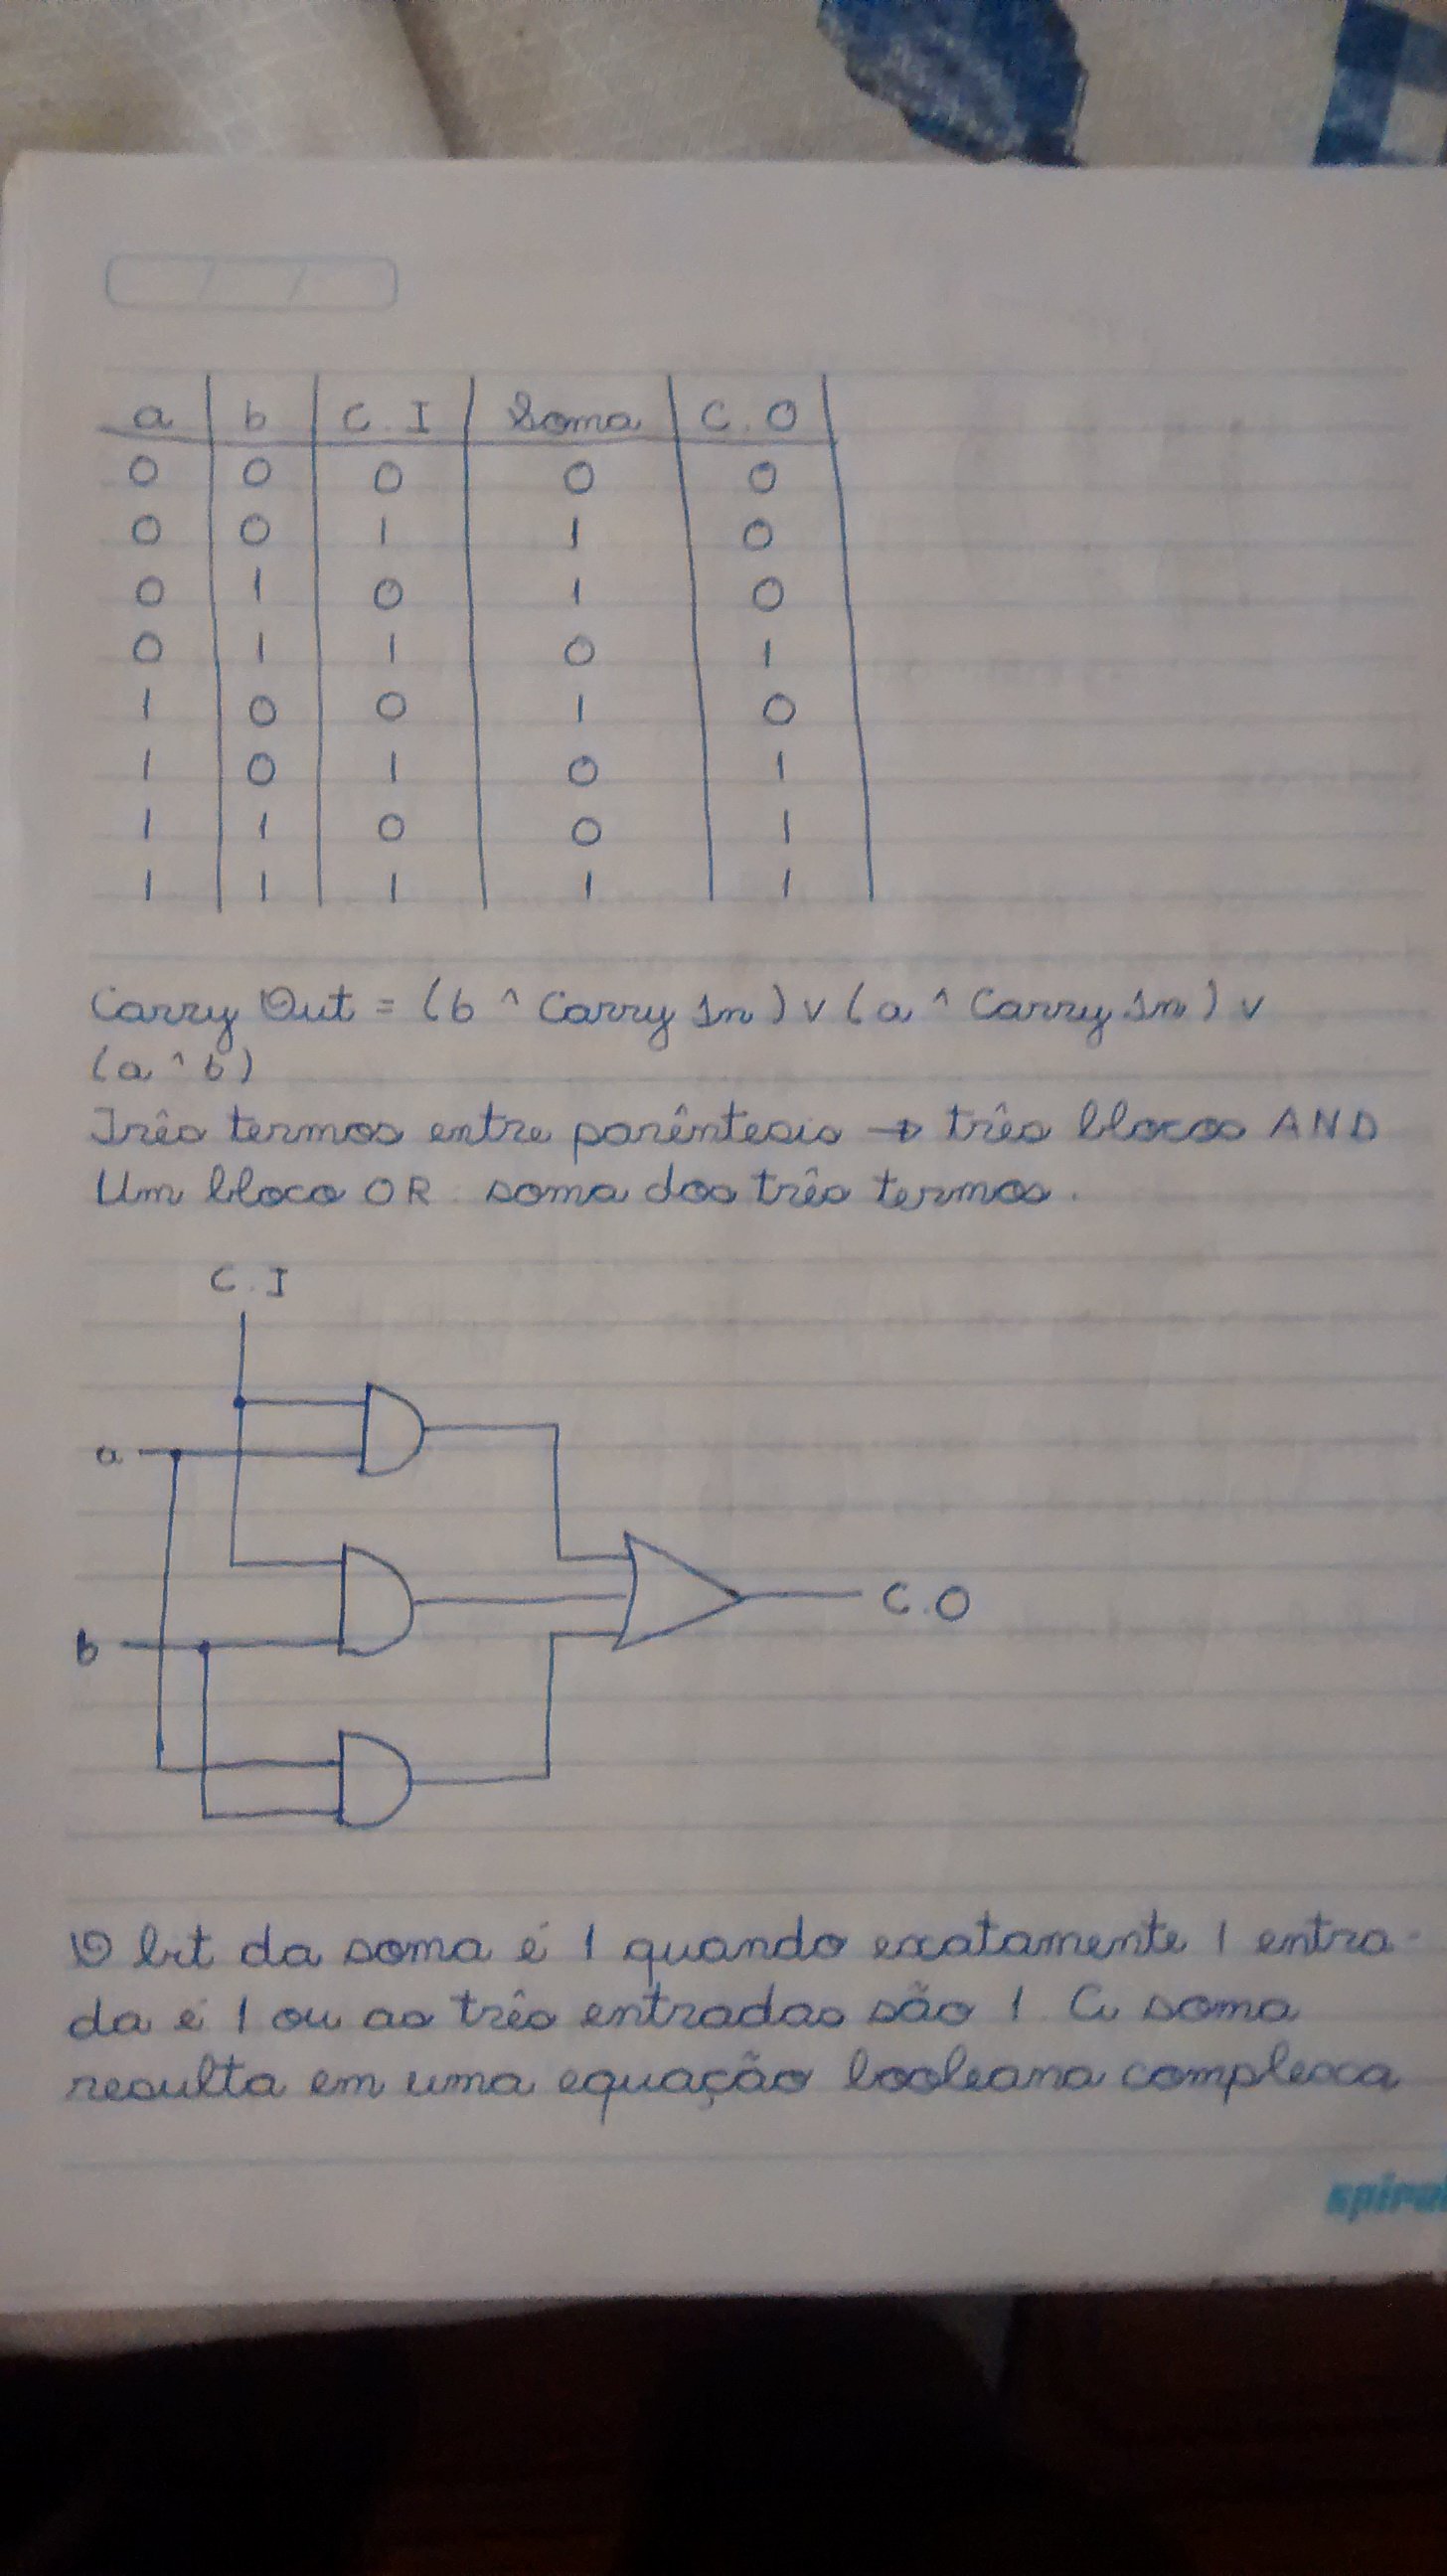 a b C.I Soma C.O
0 0 0 0 0
0 0 1 1 0
0 1 0 1 0
0 1 1 0 1
1 0 0 1 0
1 0 1 0 1
1 1 0 0 1
1 1 1 1 1
Carry Out = (b ^ Carry In) v (a ^ Carry In) v
(a ^ b)
Três termos entre parêntesis → três blocos AND
Um bloco OR soma dos três termos.
C.I
a
C.O
b
O bit da soma é 1 quando exatamente 1 entra-
da é 1 ou as três entradas são 1. A soma
resulta em uma equação booleana complexa
spiral